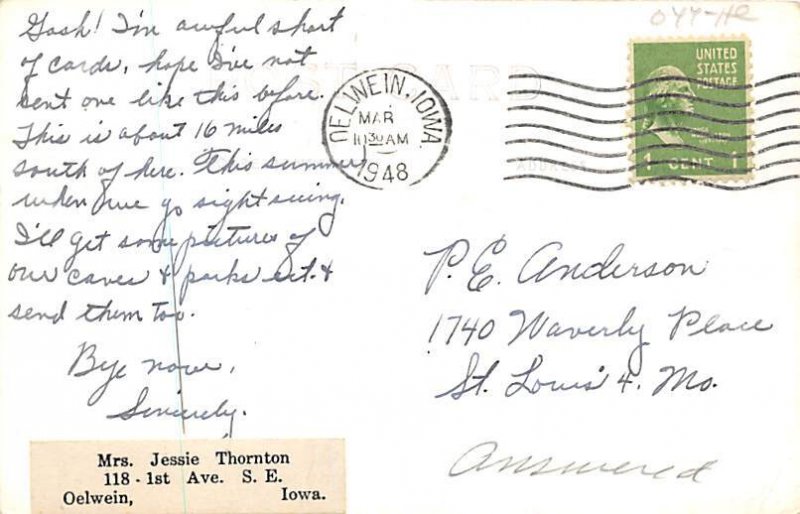 Gosh! I'm awful short
of cards, hope I've not
sent one like this before.
This is about 16 miles
south of here. This summer
when we go sight seeing,
I'll get some pictures of
our caves & parks ect. &
send them too.
Bye now,
Sincerely.
Mrs. Jessie Thornton
118 - 1st Ave. S. E.
Oelwein, Iowa.
POST CARD
OELWEIN, IOWA
MAR
1030 AM
1948
044-HR
UNITED
STATES
POSTAGE
1 CENT 1
ADDRESS
P. E. Anderson
1740 Waverly Place
St. Louis 4. Mo.
Answered